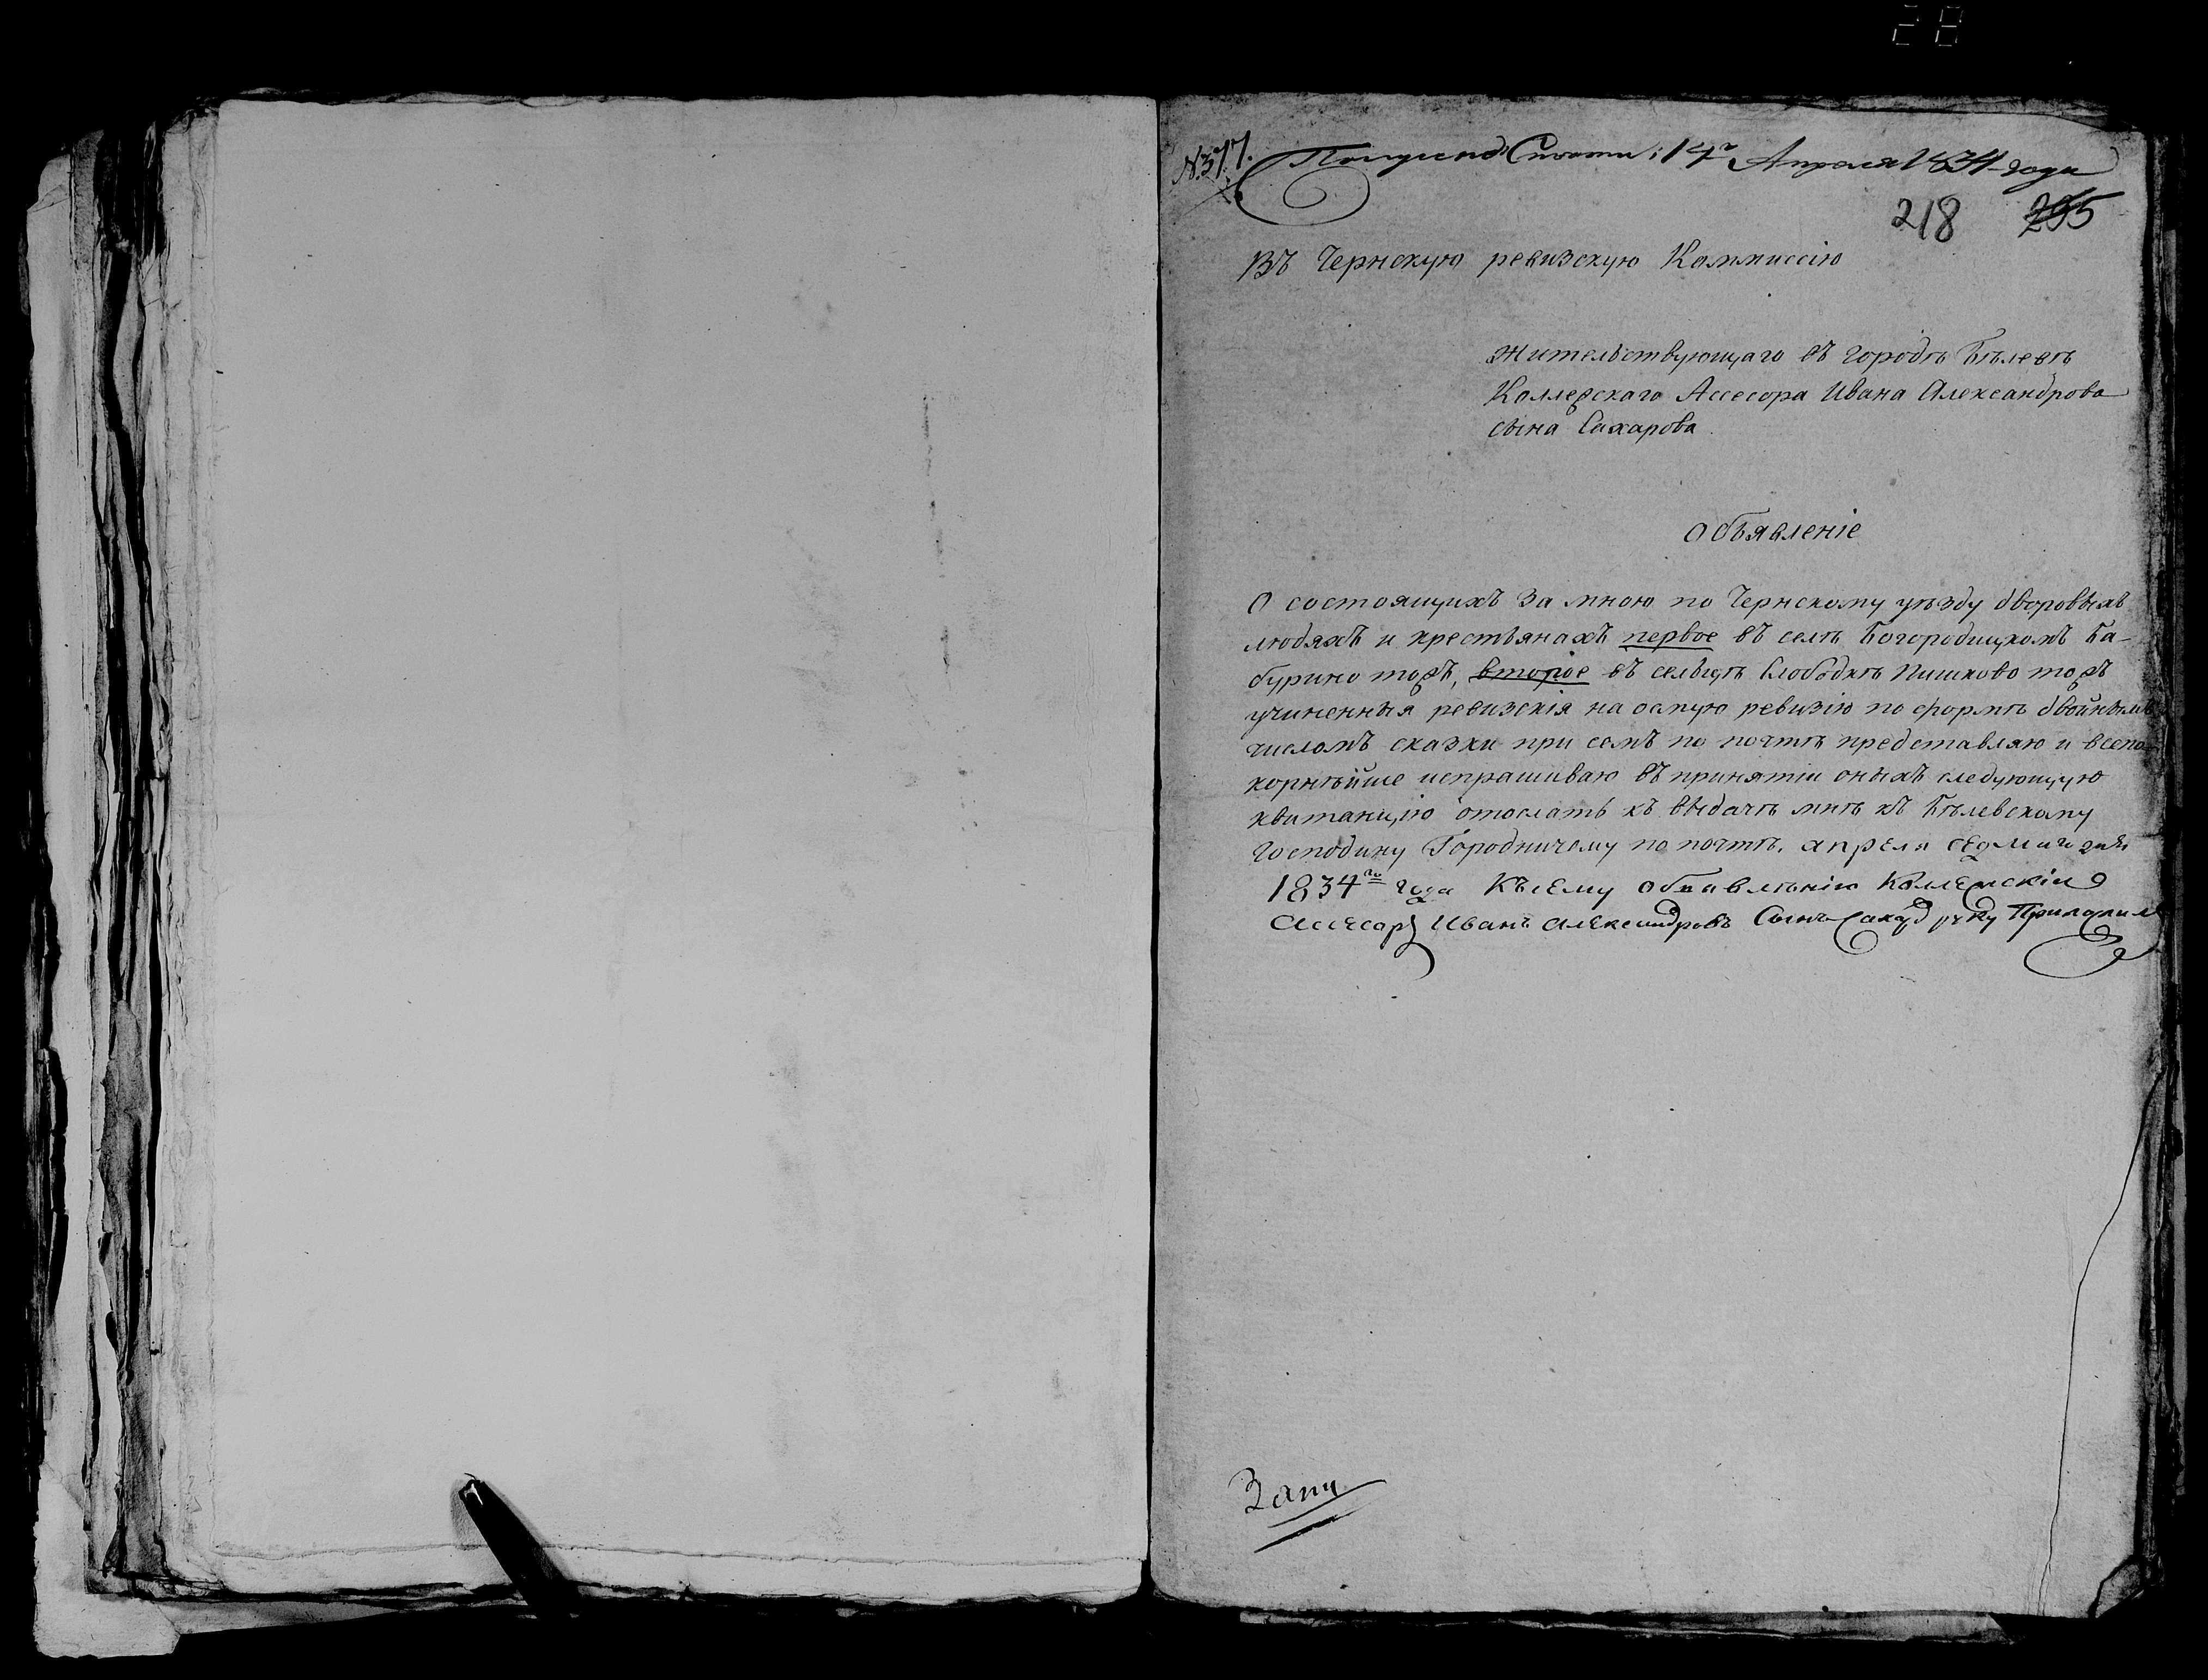 28
№377. Получено с почты 14го Апреля 1834 года
218 205
Въ Чернскую ревизскую Коммиссію
Жительствующаго въ городѣ Бѣлевѣ
Коллежскаго Ассесора Ивана Александрова
сына Сахарова
Объявленіе
О состоящихъ за мною по Чернскому уѣзду дворовыхъ
людяхъ и крестьянахъ первое въ селѣ Богородицкомъ Ба-
бурино тожъ, второе въ сельцѣ Слободкѣ Пишково тожъ
учиненныя ревизскія на осмую ревизію по формѣ двойнымъ
числомъ сказки при семъ по почтѣ представляю и всепо-
корнѣйше испрашиваю въ принятіи оныхъ следующую
квитанцію отослать къ выдачѣ мнѣ къ Бѣлевскому
Господину Городничему по почтѣ. апреля седмаго дня
1834го года Къ сему объявленію Коллежскіи
Ассесоръ Иванъ Александровъ Сынъ Сахаров руку Приложил
Запи